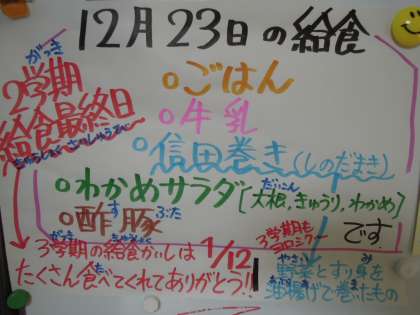 12月23日の給食
がっき
2学期
給食最終日
きゅうしょく さいしゅうび
○ごはん
○牛乳
○信田巻き(しのだまき)
○わかめサラダ[大根,きゅうり,わかめ]
だいこん
○酢豚
す ぶた
です
3学期の給食かいしは 1/12
がっき きゅうしょく
たくさん食べてくれてありがとう!!
た
3学期も
ヨロシクー
野菜とすり身を
やさい み
油揚げで巻いたもの